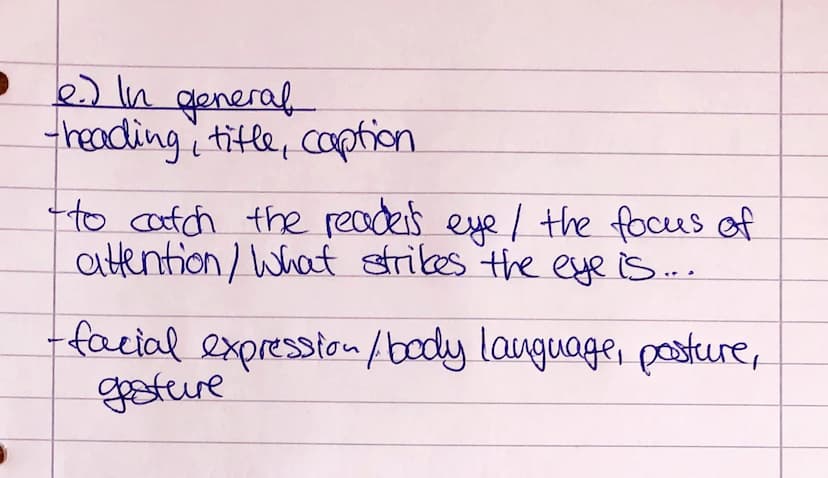 e.) In general
- heading, title, caption
- to catch the reader's eye / the focus of
attention / What strikes the eye is...
- facial expression / body language, posture,
gesture